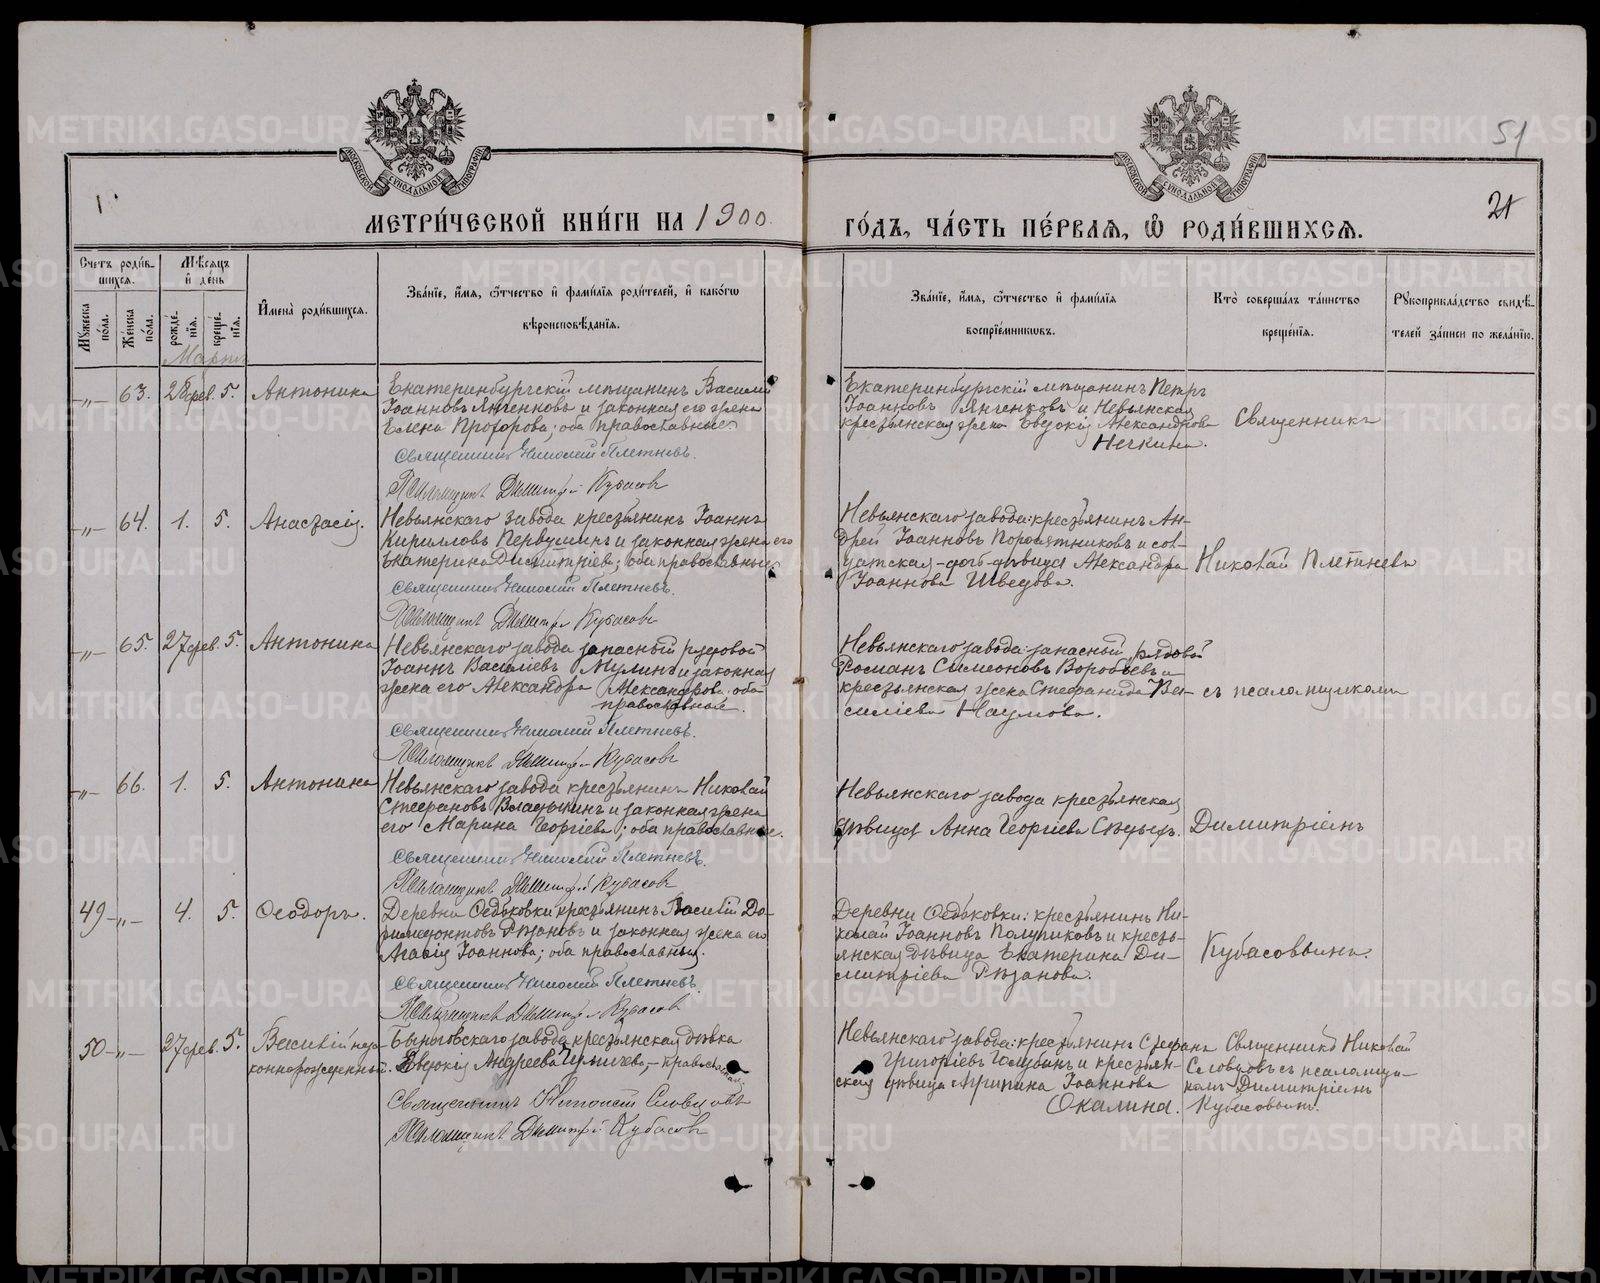 51
1
21
МЕТРИ́ЧЕСКОЙ КНИ́ГИ НА 1900
ГО́ДЪ, ЧА́СТЬ ПЕ́РВАѦ, Ѽ РОДИ́ВШИХСѦ.
МОСКОВСКОЙ СѴНОДАЛЬНОЙ ТИПОГРАФІИ
МОСКОВСКОЙ СѴНОДАЛЬНОЙ ТИПОГРАФІИ
Счетъ роди́вшихсѧ.
Мѣ́сѧцъ и҆ де́нь
Мꙋжеска по́ла.
Же́нска по́ла.
рожде́нїѧ.
креще́нїѧ.
И҆мена̀ роди́вшихсѧ.
Зва́нїе, и҆́мѧ, ѻ҆́тчество и҆ фами́лїѧ роди́телей, и҆ како́гѡ
вѣроисповѣ́данїѧ.
Зва́нїе, и҆́мѧ, ѻ҆́тчество и҆ фами́лїѧ
воспрїе́мникѡвъ.
Кто̀ соверша́лъ та́инство
креще́нїѧ.
Рꙋкоприкла́дство свидѣ́-
телей за́писи по жела́нїю.
Мартъ
-„- 63. 28 фев. 5. Антонина
Екатеринбургскій мѣщанинъ Василій
Іоанновъ Янченковъ и законная его жена
Елена Прохорова; оба православные.
Священникъ Николай Плетневъ.
Псаломщикъ Димитрій Кубасовъ
Екатеринбургскій мѣщанинъ Петръ
Іоанновъ Янченковъ и Невьянская
крестьянская жена Евдокія Александрова
Нечкина.
Священникъ
-„- 64. 1. 5. Анастасія.
Невьянскаго завода крестьянинъ Іоаннъ
Кирилловъ Первушинъ и законная жена его
Екатерина Димитріева; оба православные
Священникъ Николай Плетневъ.
Псаломщикъ Димитрій Кубасовъ
Невьянскаго завода: крестьянинъ Ан-
дрей Іоанновъ Поросятниковъ и сол-
датская дочь дѣвица Александра
Іоаннова Шведова.
Николай Плетневъ
-„- 65. 27 фев. 5. Антонина
Невьянскаго завода запасный рядовой
Іоаннъ Василіевъ Мулинъ и законная
жена его Александра Александрова; оба
православные.
Священникъ Николай Плетневъ.
Псаломщикъ Димитрій Кубасовъ
Невьянскаго завода: запасный рядовой
Романъ Симеоновъ Воробьевъ и
крестьянская жена Стефанида Ва-
силіева Наумова.
съ псаломщикомъ
-„- 66. 1. 5. Антонина
Невьянскаго завода крестьянинъ Николай
Стефановъ Владыкинъ и законная жена
его Марина Георгіева; оба православные.
Священникъ Николай Плетневъ.
Псаломщикъ Димитрій Кубасовъ
Невьянскаго завода крестьянская
дѣвица Анна Георгіева
Димитріемъ
49 -„- 4. 5. Ѳеодоръ.
Деревни Ѳедьковки крестьянинъ Василій До-
римедонтовъ Рязановъ и законная жена его
Агафія Іоаннова; оба православные.
Священникъ Николай Плетневъ.
Псаломщикъ Димитрій Кубасовъ
Деревни Ѳедьковки: крестьянинъ Ни-
колай Іоанновъ Полупиковъ и кресть-
янская дѣвица Екатерина Ди-
митріева Рязанова.
Кубасовымъ.
50 -„- 27 фев. 5. Василій неза-
коннорожденный.
Быньговскаго завода крестьянская дѣвка
Евдокія Андреева православная.
Священникъ Николай Словцовъ
Псаломщикъ Димитрій Кубасовъ
Невьянскаго завода: крестьянинъ Стефанъ
Григоріевъ Голубинъ и крестьян-
ская дѣвица Агриппина Іоаннова
Окалина.
Священникъ Николай
Словцовъ съ псаломщи-
комъ Димитріемъ
Кубасовымъ.
METRIKI.GASO-URAL.RU